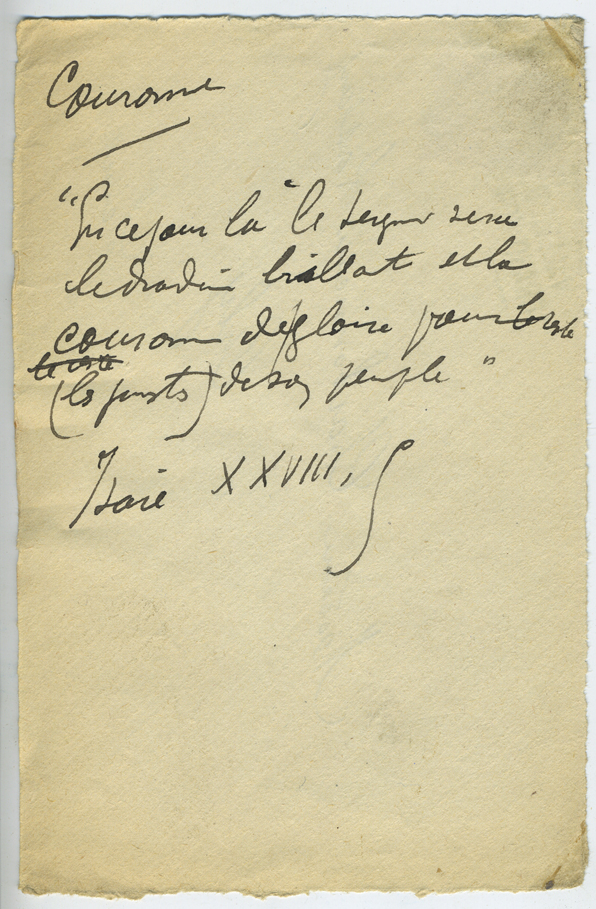 Couronne
"En ce jour là le seigneur sera
le diadème brillant et la
couronne de gloire pour le reste
le reste
(les justes) de son peuple"
Isaïe XXVIII, 5